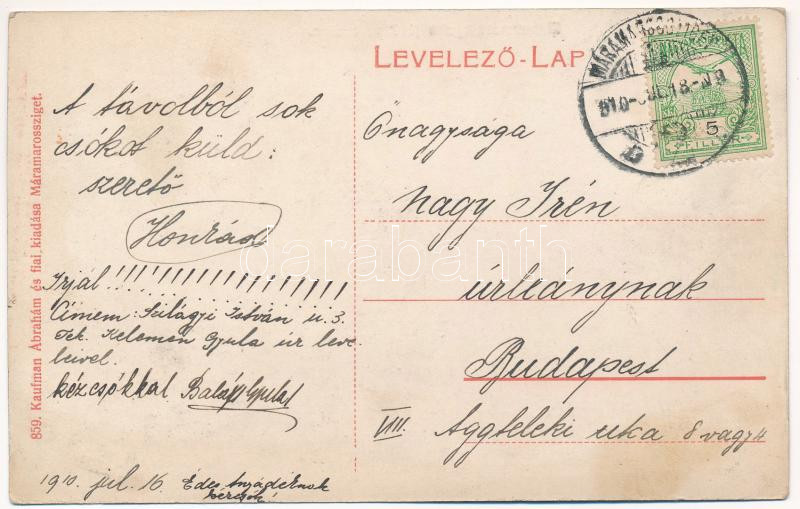 LEVELEZŐ-LAP
859. Kaufman Ábrahám és fiai kiadása Máramarossziget.
A távolból sok
csókot küld:
szerető
Konrád
Irjál!!!!!!!!!!!!!!!!
Címem: Szilágyi István u. 3.
Tek. Kelemen Gyula úr leve-
leivel.
kézcsókkal
1910. jul. 16. Édes
Őnagysága
Nagy Irén
úrleánynak
Budapest
VIII. Aggteleki utca 8 vagy 4
5
FILLÉR
darabanth